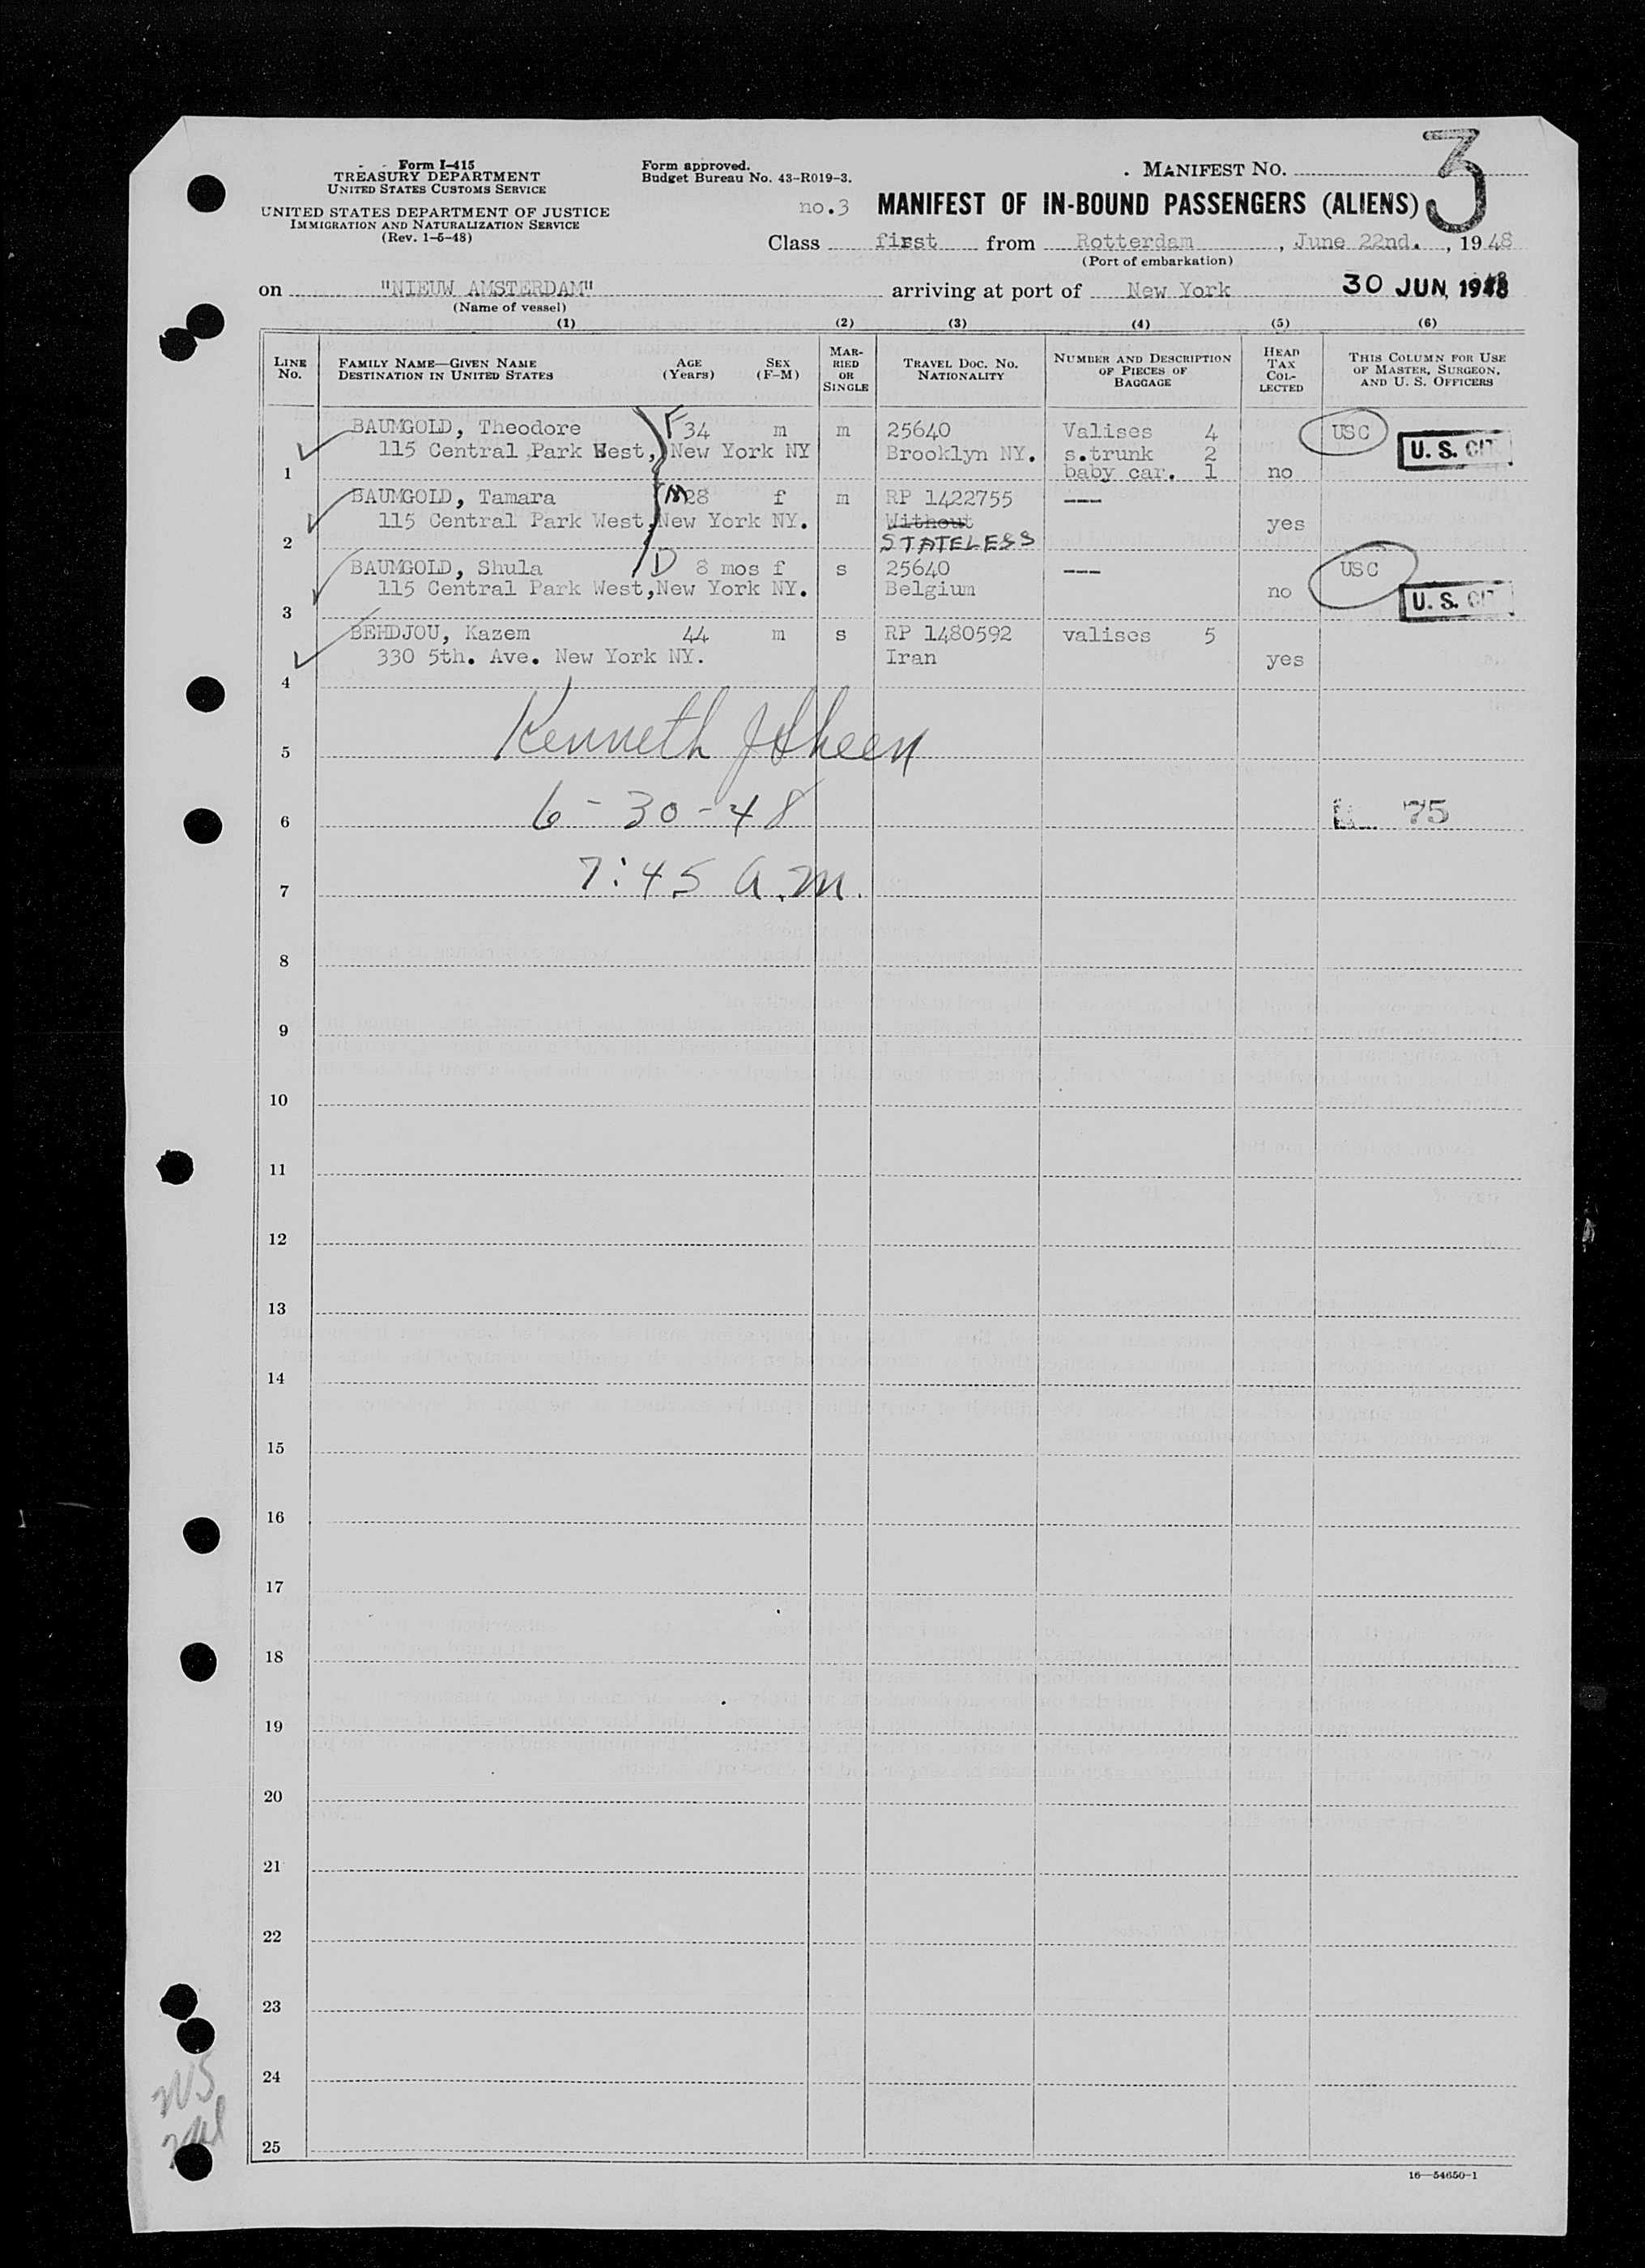 Form I-415
TREASURY DEPARTMENT
UNITED STATES CUSTOMS SERVICE
UNITED STATES DEPARTMENT OF JUSTICE
IMMIGRATION AND NATURALIZATION SERVICE
(Rev. 1-5-48)
Form approved.
Budget Bureau No. 43-R019-3.
MANIFEST NO. 3
no.3 MANIFEST OF IN-BOUND PASSENGERS (ALIENS)
Class first from Rotterdam, June 22nd., 1948
(Port of embarkation)
on "NIEUW AMSTERDAM" arriving at port of New York 30 JUN 1948
(Name of vessel)
(1) (2) (3) (4) (5) (6)
LINE No.
FAMILY NAME—GIVEN NAME
DESTINATION IN UNITED STATES
AGE (Years)
SEX (F-M)
MAR-RIED OR SINGLE
TRAVEL DOC. NO. NATIONALITY
NUMBER AND DESCRIPTION OF PIECES OF BAGGAGE
HEAD TAX COL-LECTED
THIS COLUMN FOR USE OF MASTER, SURGEON, AND U. S. OFFICERS
BAUMGOLD, Theodore F 34 m m 25640 Valises 4 USC U. S. CIT
115 Central Park West, New York NY Brooklyn NY. s.trunk 2
1 baby car. 1 no
BAUMGOLD, Tamara M 28 f m RP 1422755 ---
115 Central Park West, New York NY. Without yes
2 STATELESS
BAUMGOLD, Shula D 8 mos f s 25640 --- USC
115 Central Park West, New York NY. Belgium no U. S. CIT
3
BEHDJOU, Kazem 44 m s RP 1480592 valises 5
330 5th. Ave. New York NY. Iran yes
4
Kenneth J Sheen
5
6-30-48
6 75
7:45 a.m.
7
8
9
10
11
12
13
14
15
16
17
18
19
20
21
22
23
24
25
16—54650-1